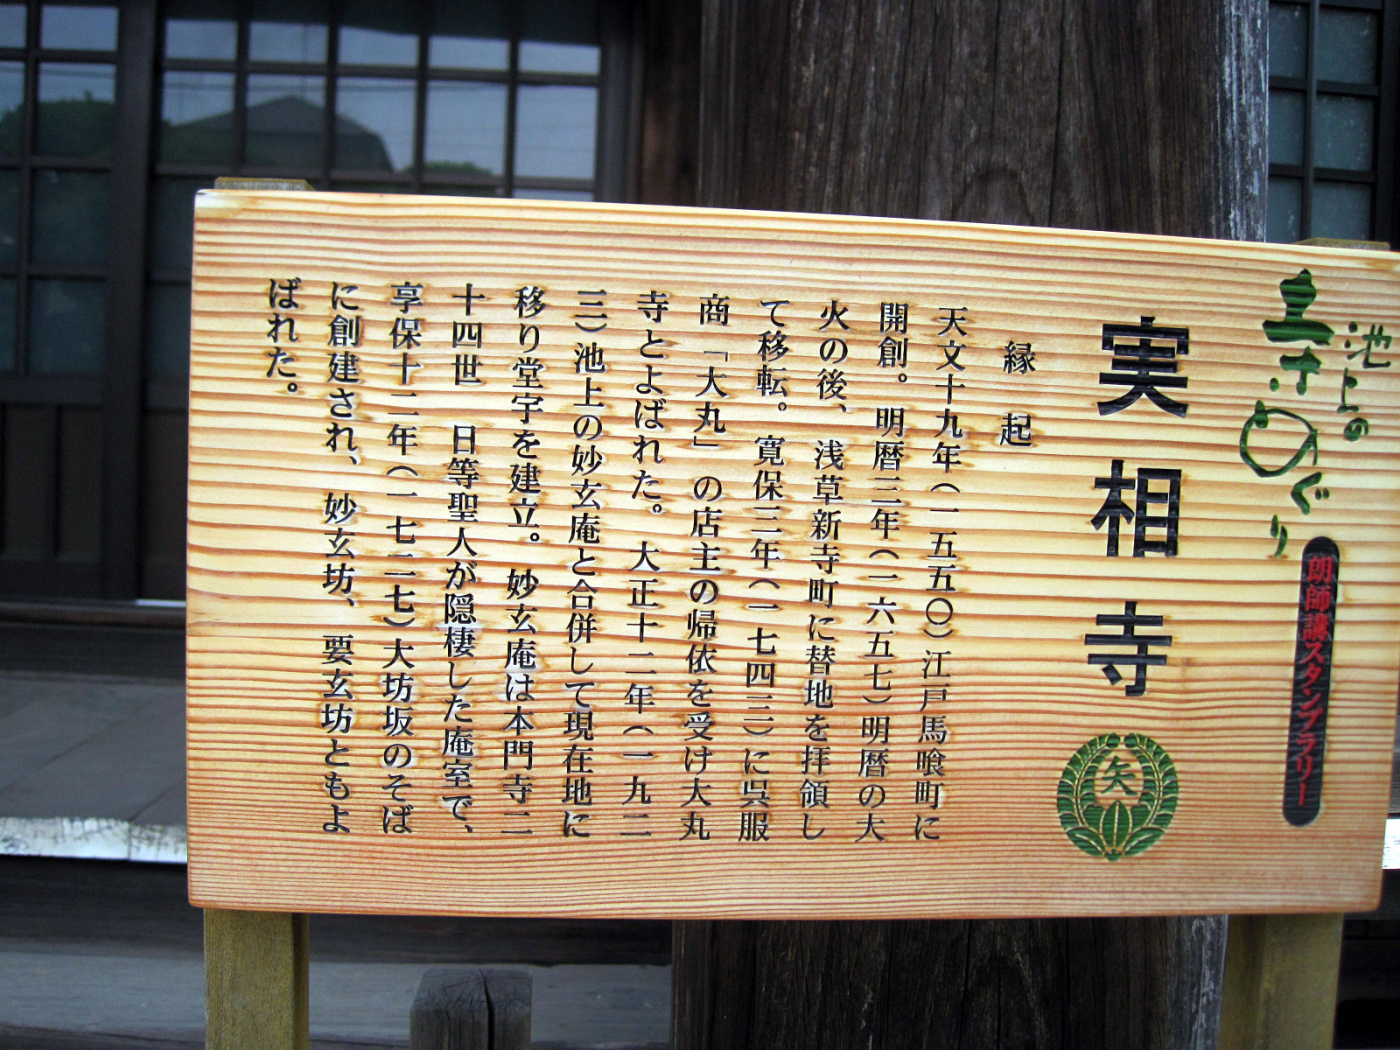 池上の
寺めぐり
朗師講スタンプラリー
実相寺
矢
縁起
天文十九年（一五五〇）江戸馬喰町に
開創。明暦三年（一六五七）明暦の大
火の後、浅草新寺町に替地を拝領し
て移転。寛保三年（一七四三）に呉服
商「大丸」の店主の帰依を受け大丸
寺とよばれた。大正十二年（一九二
三）池上の妙玄庵と合併して現在地に
移り堂宇を建立。妙玄庵は本門寺二
十四世　日等聖人が隠棲した庵室で、
享保十二年（一七二七）大坊坂のそば
に創建され、妙玄坊、要玄坊ともよ
ばれた。